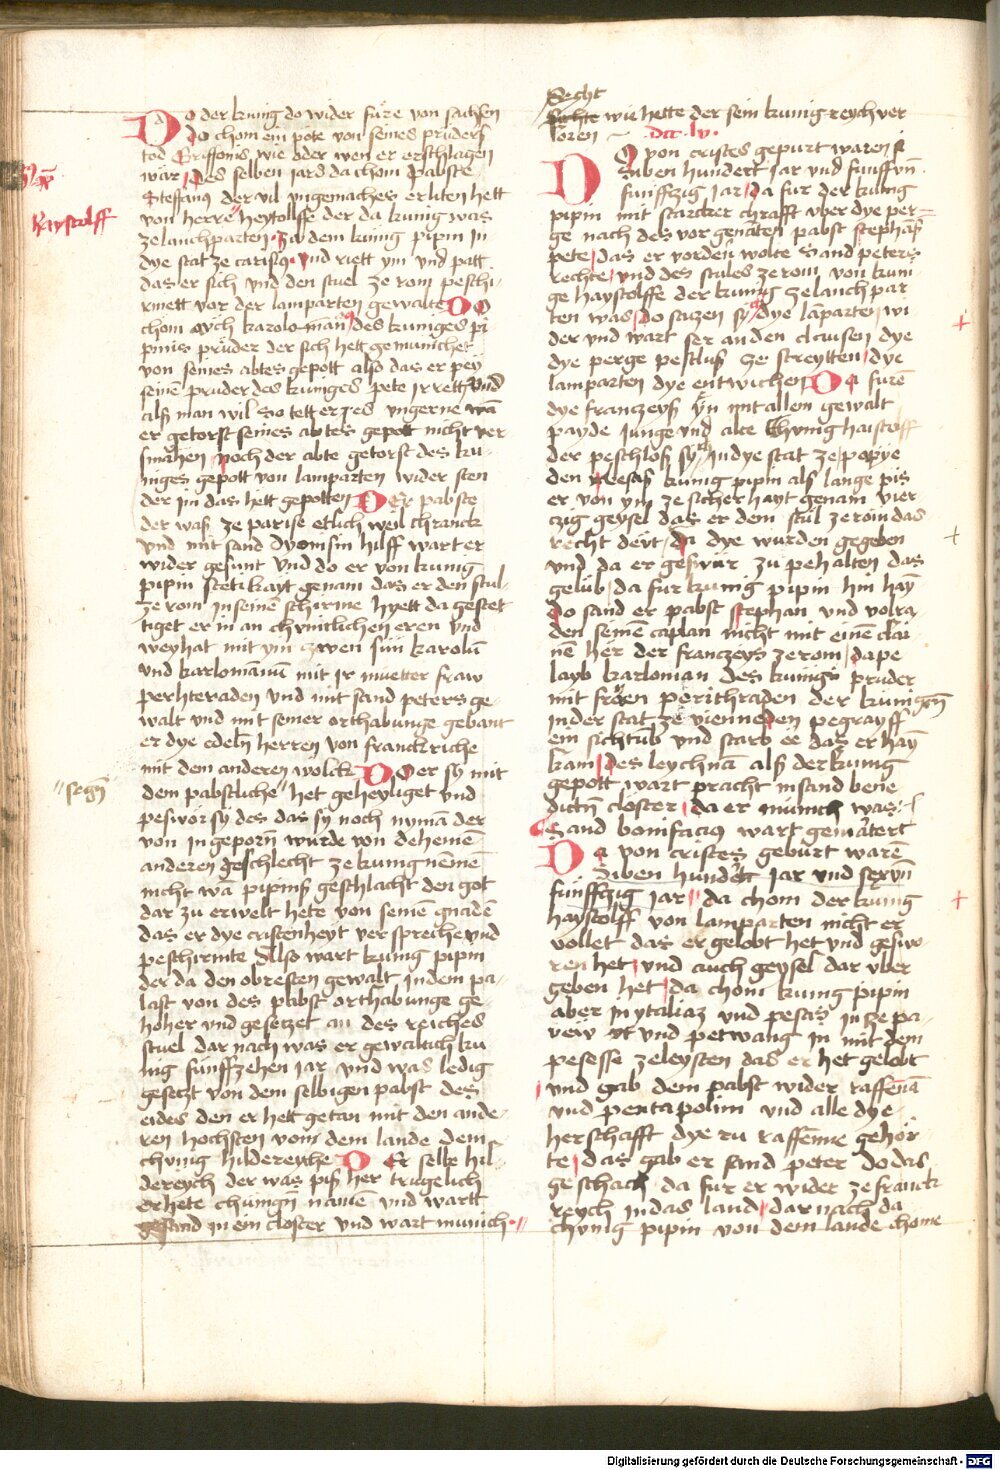 Do der kunig do wider fure von sachsen
do chom ein pote von seines pruders
tod Griffonis, wie oder wen er erschlagen
wär, Des selben jars da chom Pabste
Steffanus der vil ungemaches erliten hett
Haystolff
von herre heytolffe der da kunig was
ze lanchparten. zu dem kunig pipin in
dye stat ze carisiaco. und riett ym und patt
das er sich und den stuel ze rom peschi-
rmett vor der lamparten gewalte Do
chom auch karoloman des kuniges pi
pinis prüder der sich hett gemunichet
von seines abtes gepott also das er pey
seinē pruder des kuniges pete jr rett und
als man wil so tett er zes ungerne wā
er getorst seines abtes gepott nicht ver
smahen noch der abte getorst des ku-
niges gepott von lamparten wider sten
der im das hett gepotten Der pabste
der was ze parise etlich weil chranck
und mit sand Dyonisin hilff wart er
wider gesunt und do er von kunig
pipin stetikayt genam das er den stul-
ze rom in seinem schirme hyett da gestet
tiget er in an chunicklichen eren und
weyhat mit ym zwen sün karolū
und karlomannū mit jr muetter fraw
perhteraden und mit sand peters ge-
walt und mit seiner orthabunge gebant
er dye edelñ herren von franckriche
mit dem anderen wolck Do er sy mit
segñ
dem pabstliche" het geheyliget und
peswör sy des das sy noch nymā der
von in geporñ würde von deheinē
anderen geschlecht ze kunig nemē
nicht wā pipinß geschlacht den got
dar zu erwelt hete von seinē gnadē
das er dye cristenheyt versprech und
peschirmte Also wart kunig pipin
der da den obresten gewalt in dem pa-
last von des pabst orthabunge ge-
hoher und gesetzet an des reiches
stuel dar nach was er gewaltich ku
nig fünffzehen jar und was ledig
gesetzt von dem selbigen pabst des
eides den er hett getan mit den ande-
ren hochsten vom dem lande dem
chunig hildereyche Der selb hil-
dereych der was pis her trugelich
er hete chunigñ namē und wartt
gesand in ein closter und wart munich.
Secht
wie hette der sein kunig reych ver
loren dcc.lv.
Do von cristes gepurt waren si
siben hundert jar und funffvñ
funffzig jar, da fur der kunig
pipin mit starcker chrafft uber dye per=
ge nach des vor genātē pabst stephās
pete, das er vordeñ wolte sand peters
rechte, und des stules ze rom von kuni-
ge haystolffe der kunig ze lanch par
ten was, do sazen sich dye lāparten, wi
der und wart ser an den clausen dye
dye perge pesluß ze streytten, dye
lamparten dye entwichen Do furē
dye franczeyß yn mit allem gewalt
payde junge und alte Chunig haistolff
der peschloß sich in dye stat ze papye
den pesaß kunig pipin als lange pis
er von ym ze sicher hayt genam vier
czig geysel das er dem stul ze rom das
recht dett, da dye wurden gegeben
und da er geswür zu pehalten das
gelüb, da fur kunig pipin hin haÿ
do sand er pabst stephan und volra
den seinē caplan nicht mit einē clai
nē her der franczeys ze rom, da pe
layb karloman des kunigs pruder
mit frawen perithraden der kunigñ
in der stat ze vienne den pegrayff
ein siechtūb und starb ee das er haÿ
kam, Des leychnā als der kunig
gepott wart pracht in sand bene
dictñ closter, da er munich was.
Sand bonifacius wart gemātert
Do von cristes gebürt warē
siben hundert jar und sexvñ
fünffczig jar, da chom der kunig
haystolff von lamparten nicht er
vollet das er gelobt het und geswo-
ren het, und auch geysel dar uber
geben het, da chom kunig pipin
aber in ytaliaz und pesas in ze pa-
veiw ut und petwang in mit dem
pesesse ze leysten das er het gelobt
und gab dem pabst wider raffenā
und pentapolim und alle dye
herschafft dye zu raffenne gehör-
te, das gab er sand peter do das
geschach da fur er wider ze franck
reych in das land, dar nach da
chunig pipin von dem lande chome
Digitalisierung gefördert durch die Deutsche Forschungsgemeinschaft - DFG